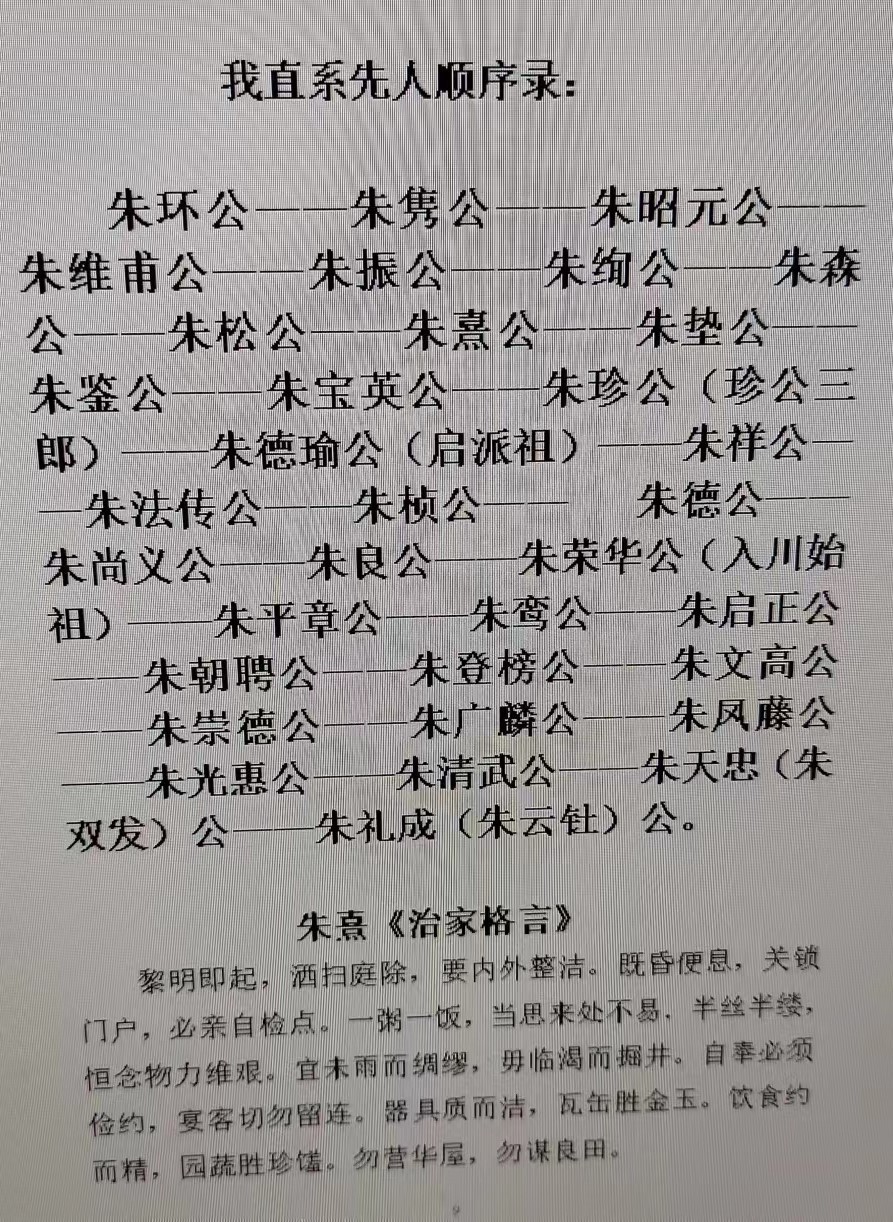 我直系先人顺序录：
朱环公——朱隽公——朱昭元公——
朱维甫公——朱振公——朱绚公——朱森
公——朱松公——朱熹公——朱垫公——
朱鉴公——朱宝英公——朱珍公（珍公三
郎）——朱德瑜公（启派祖）——朱祥公—
—朱法传公——朱桢公—— 朱德公——
朱尚义公——朱良公——朱荣华公（入川始
祖）——朱平章公——朱鸾公——朱启正公
——朱朝聘公——朱登榜公——朱文高公
——朱崇德公——朱广麟公——朱凤藤公
——朱光惠公——朱清武公——朱天忠（朱
双发）公——朱礼成（朱云钍）公。
朱熹《治家格言》
黎明即起，洒扫庭除，要内外整洁。既昏便息，关锁
门户，必亲自检点。一粥一饭，当思来处不易．半丝半缕，
恒念物力维艰。宜未雨而绸缪，毋临渴而掘井。自奉必须
俭约，宴客切勿留连。器具质而洁，瓦缶胜金玉。饮食约
而精，园蔬胜珍馐。勿营华屋，勿谋良田。
9